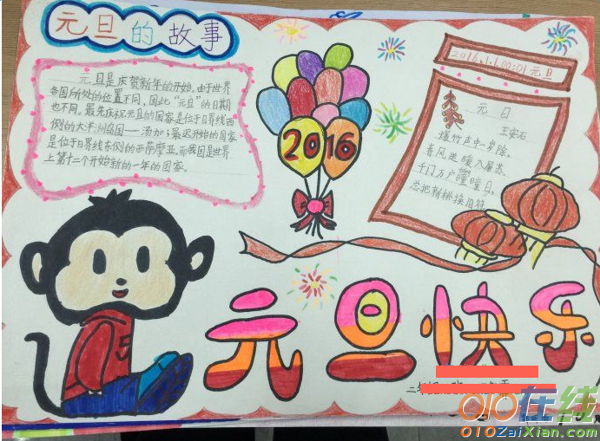 元旦的故事
元旦是庆贺新年的开始,由于世界
各国所处的位置不同,因此"元旦"的日期
也不同。最先庆祝元旦的国家是位于日界线西
侧的大洋洲岛国——汤加;最迟开始的国家
是位于日界线东侧的西萨摩亚,而我国是世界
上第十二个开始新的一年的国家。
2016
2016.1.1.00:01元旦
元日
王安石
爆竹声中一岁除,
春风送暖入屠苏。
千门万户曈曈日,
总把新桃换旧符
元旦快乐
二年级
010在线
010ZaiXian.com